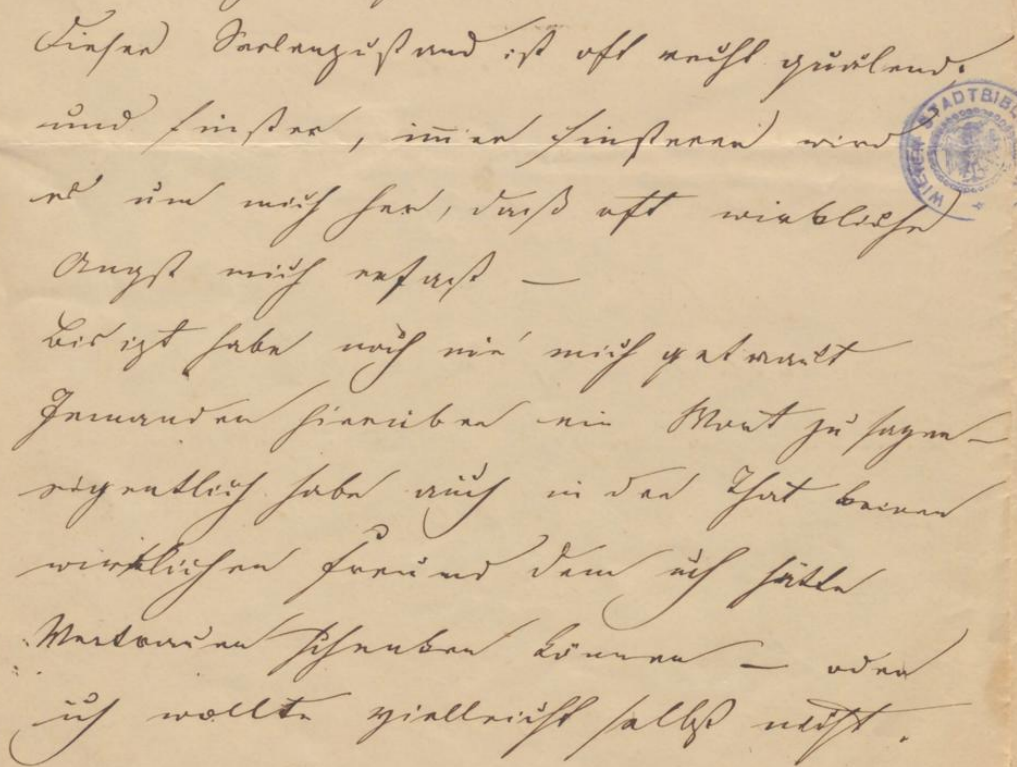 Dieser Seelenzustand ist oft recht quälend.
und finster, immer finsterer wird
es um mich her, daß oft wirkliche
Angst mich erfaßt —
Bis izt habe noch nie mich getraut
Jemanden hierüber ein Wort zu sagen —
eigentlich habe auch in der That keinen
wirklichen Freund dem ich hätte
Vertrauen schenken können — oder
ich wollte vielleicht selbst nicht.
WIENER STADTBIB